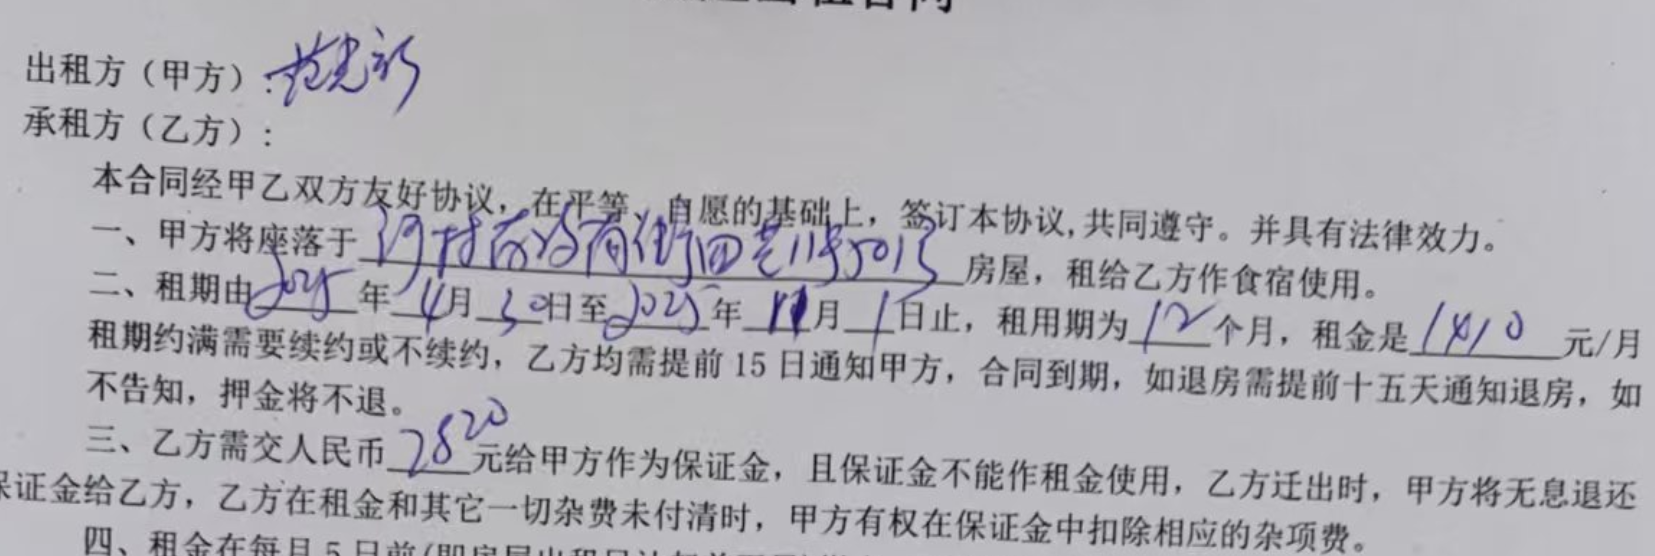 出租方（甲方）:范光新
承租方（乙方）:
本合同经甲乙双方友好协议，在平等、自愿的基础上，签订本协议,共同遵守。并具有法律效力。
一、甲方将座落于 房屋，租给乙方作食宿使用。
二、租期由2025年4月30日至2025年11月1日止，租用期为12个月，租金是1410元/月
租期约满需要续约或不续约，乙方均需提前15日通知甲方，合同到期，如退房需提前十五天通知退房，如
不告知，押金将不退。
三、乙方需交人民币2820元给甲方作为保证金，且保证金不能作租金使用，乙方迁出时，甲方将无息退还
保证金给乙方，乙方在租金和其它一切杂费未付清时，甲方有权在保证金中扣除相应的杂项费。
四、租金在每月5日前